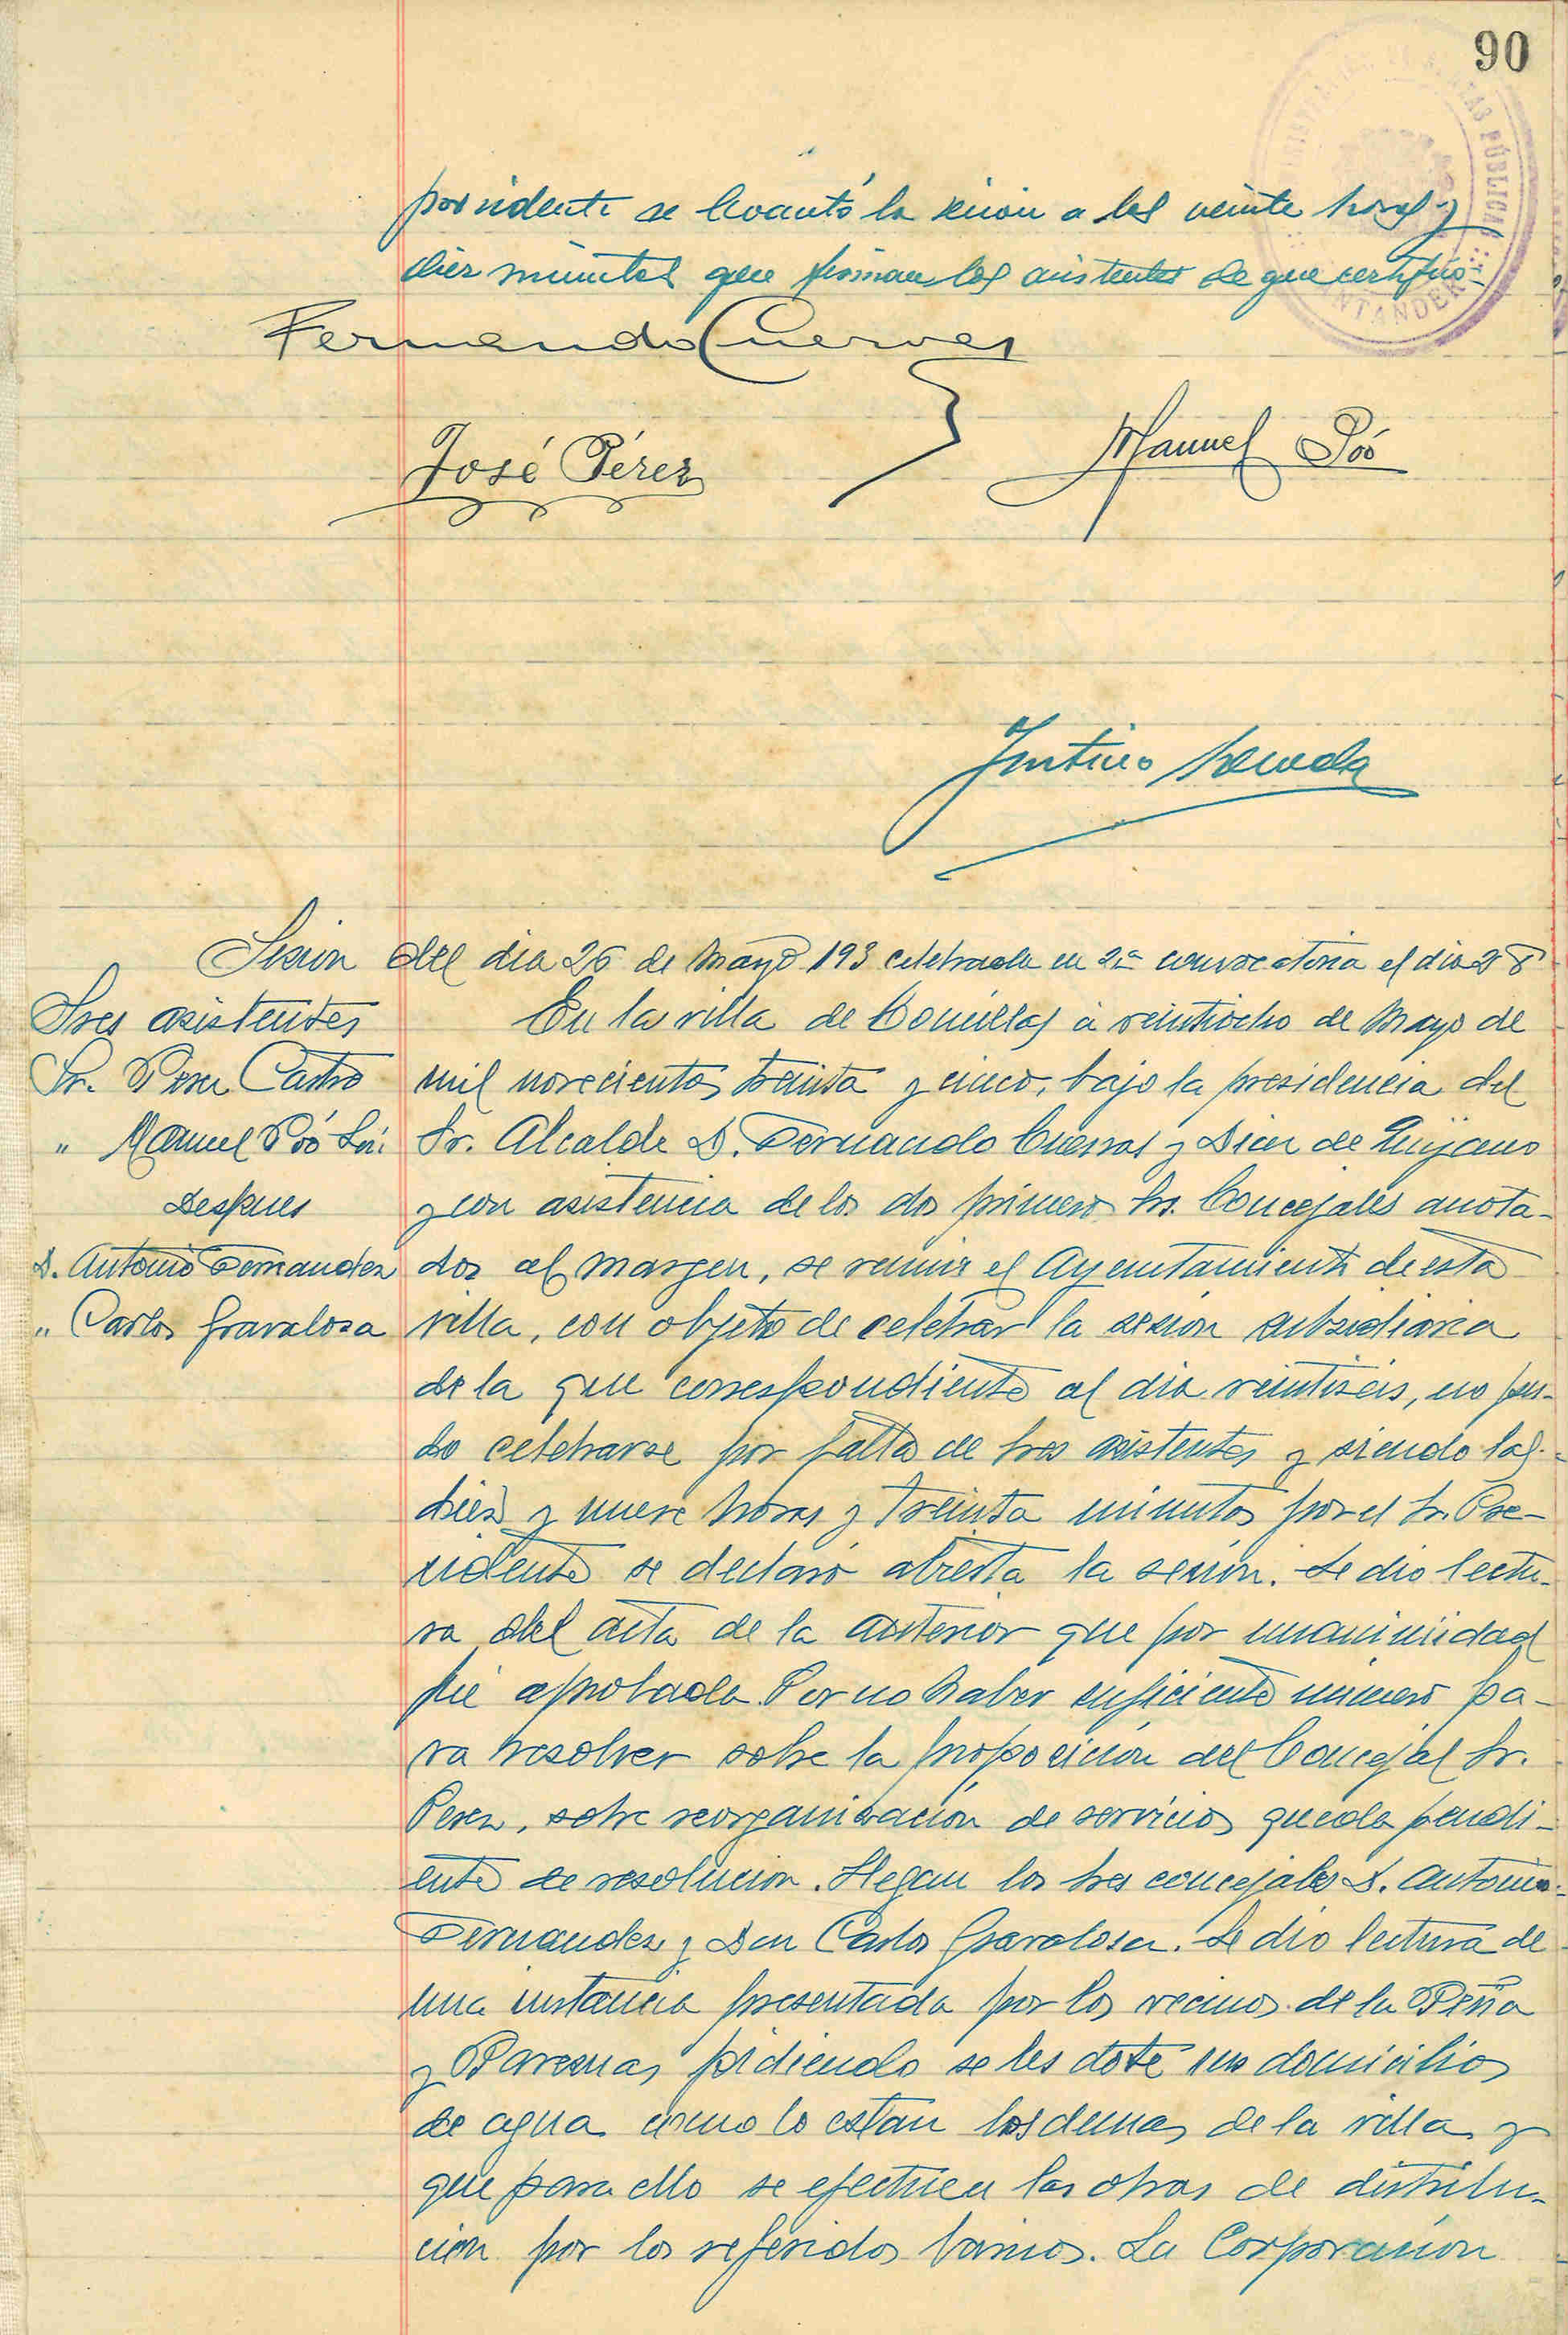 90
presidente se levantó la sesion a las veinte horas y
diez minutos que firman los asistentes de que certifico.
Fernando Cuevas
José Pérez
Manuel Póo
SANTANDER
Sesion del dia 26 de Mayo 193 celebrada en 2ª convocatoria el dia 28
Sres asistentes
Sr. Perez Castro
" Manuel Póo
Despues
D. Antonio Fernandez
" Carlos Gravalosa
En la villa de Comillas a veintiocho de Mayo de
mil novecientos treinta y cinco, bajo la presidencia del
Sr. Alcalde D. Fernando Cuevas y Diez de Quijano
y con asistencia de los dos primeros Srs. Concejales anota-
dos al margen, se reunió el Ayuntamiento de esta
villa, con objeto de celebrar la sesion subsidiaria
de la que correspondiente al dia veintiseis, no pu-
do celebrarse por falta de Sres asistentes y siendo las
diez y nueve horas y treinta minutos por el Sr. Pre-
sidente se declaró abierta la sesión. Se dio lectu-
ra del acta de la anterior que por unanimidad
fué aprobada. Por no haber suficiente número pa-
ra resolver sobre la proposición del Concejal Sr.
Perez, sobre reorganización de servicios queda pendi-
ente de resolucion. Llegan los Sres concejales D. Antonio
Fernandez y Don Carlos Gravalosa. Se dio lectura de
una instancia presentada por los vecinos de la Peña
y pidiendo se les dote sus domicilios
de agua como lo estan los demas de la villa y
que para ello se efectuen las obras de distribu-
cion por los referidos barrios. La Corporacion